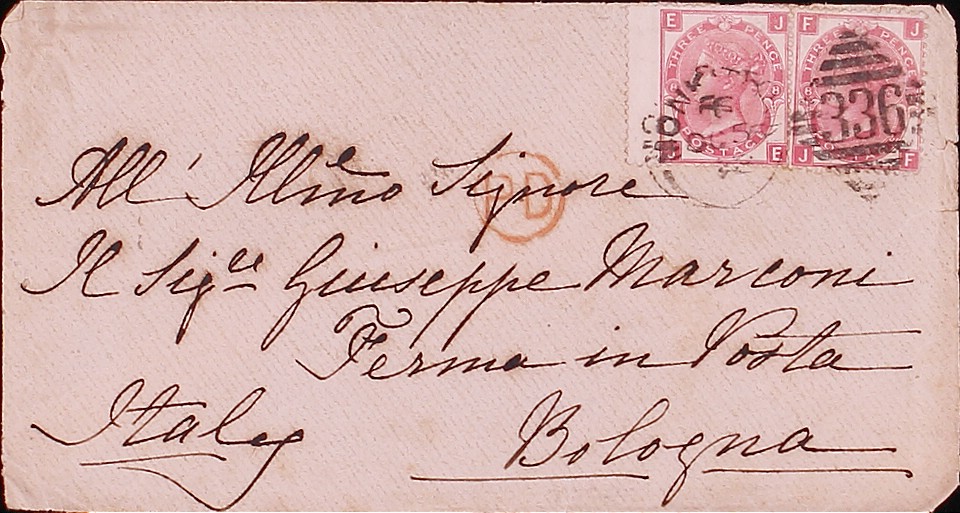 E J F J
THREE PENCE THREE PENCE
8 8
336
POSTAGE
J E J F
All' Illmo Signore
PD
Il Sigre Giuseppe Marconi
Ferma in Posta
Italy Bologna